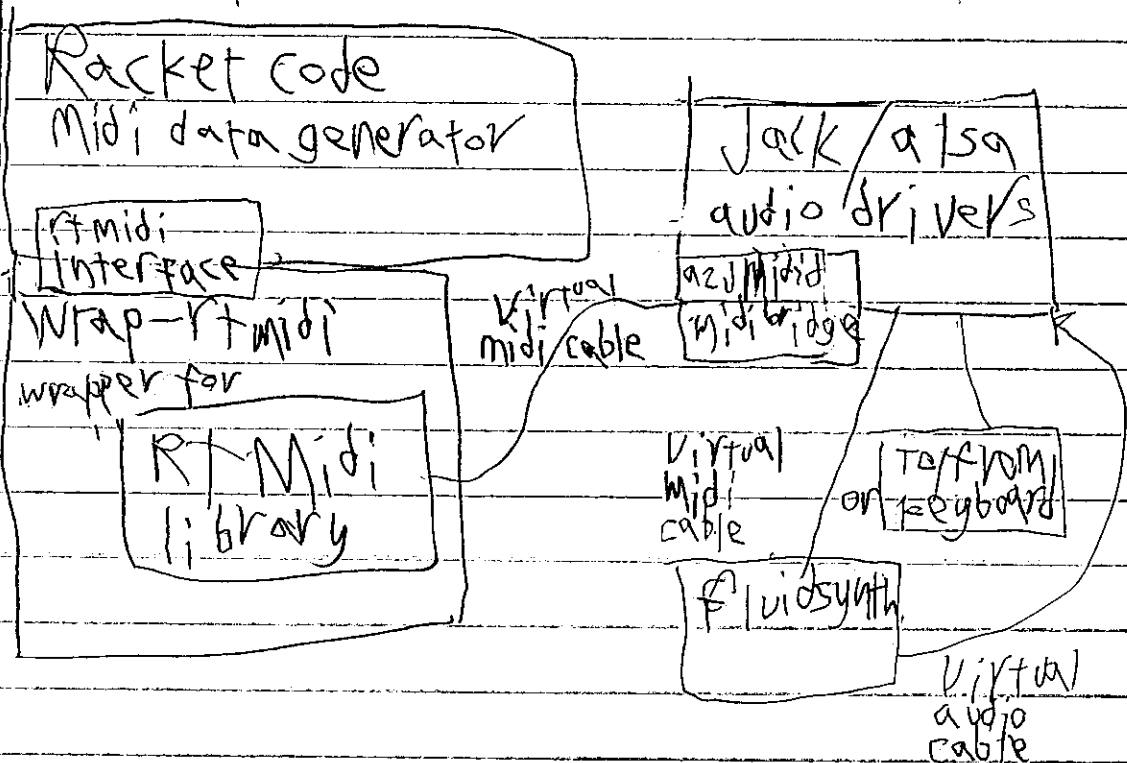 Racket code
Midi data generator
rtmidi
interface
Wrap-rtmidi
wrapper for
RtMidi
library
virtual
midi cable
Jack / alsa
audio drivers
a2jmidid
midi bridge
virtual
midi
cable
or
To/from
keyboard
fluidsynth
virtual
audio
cable